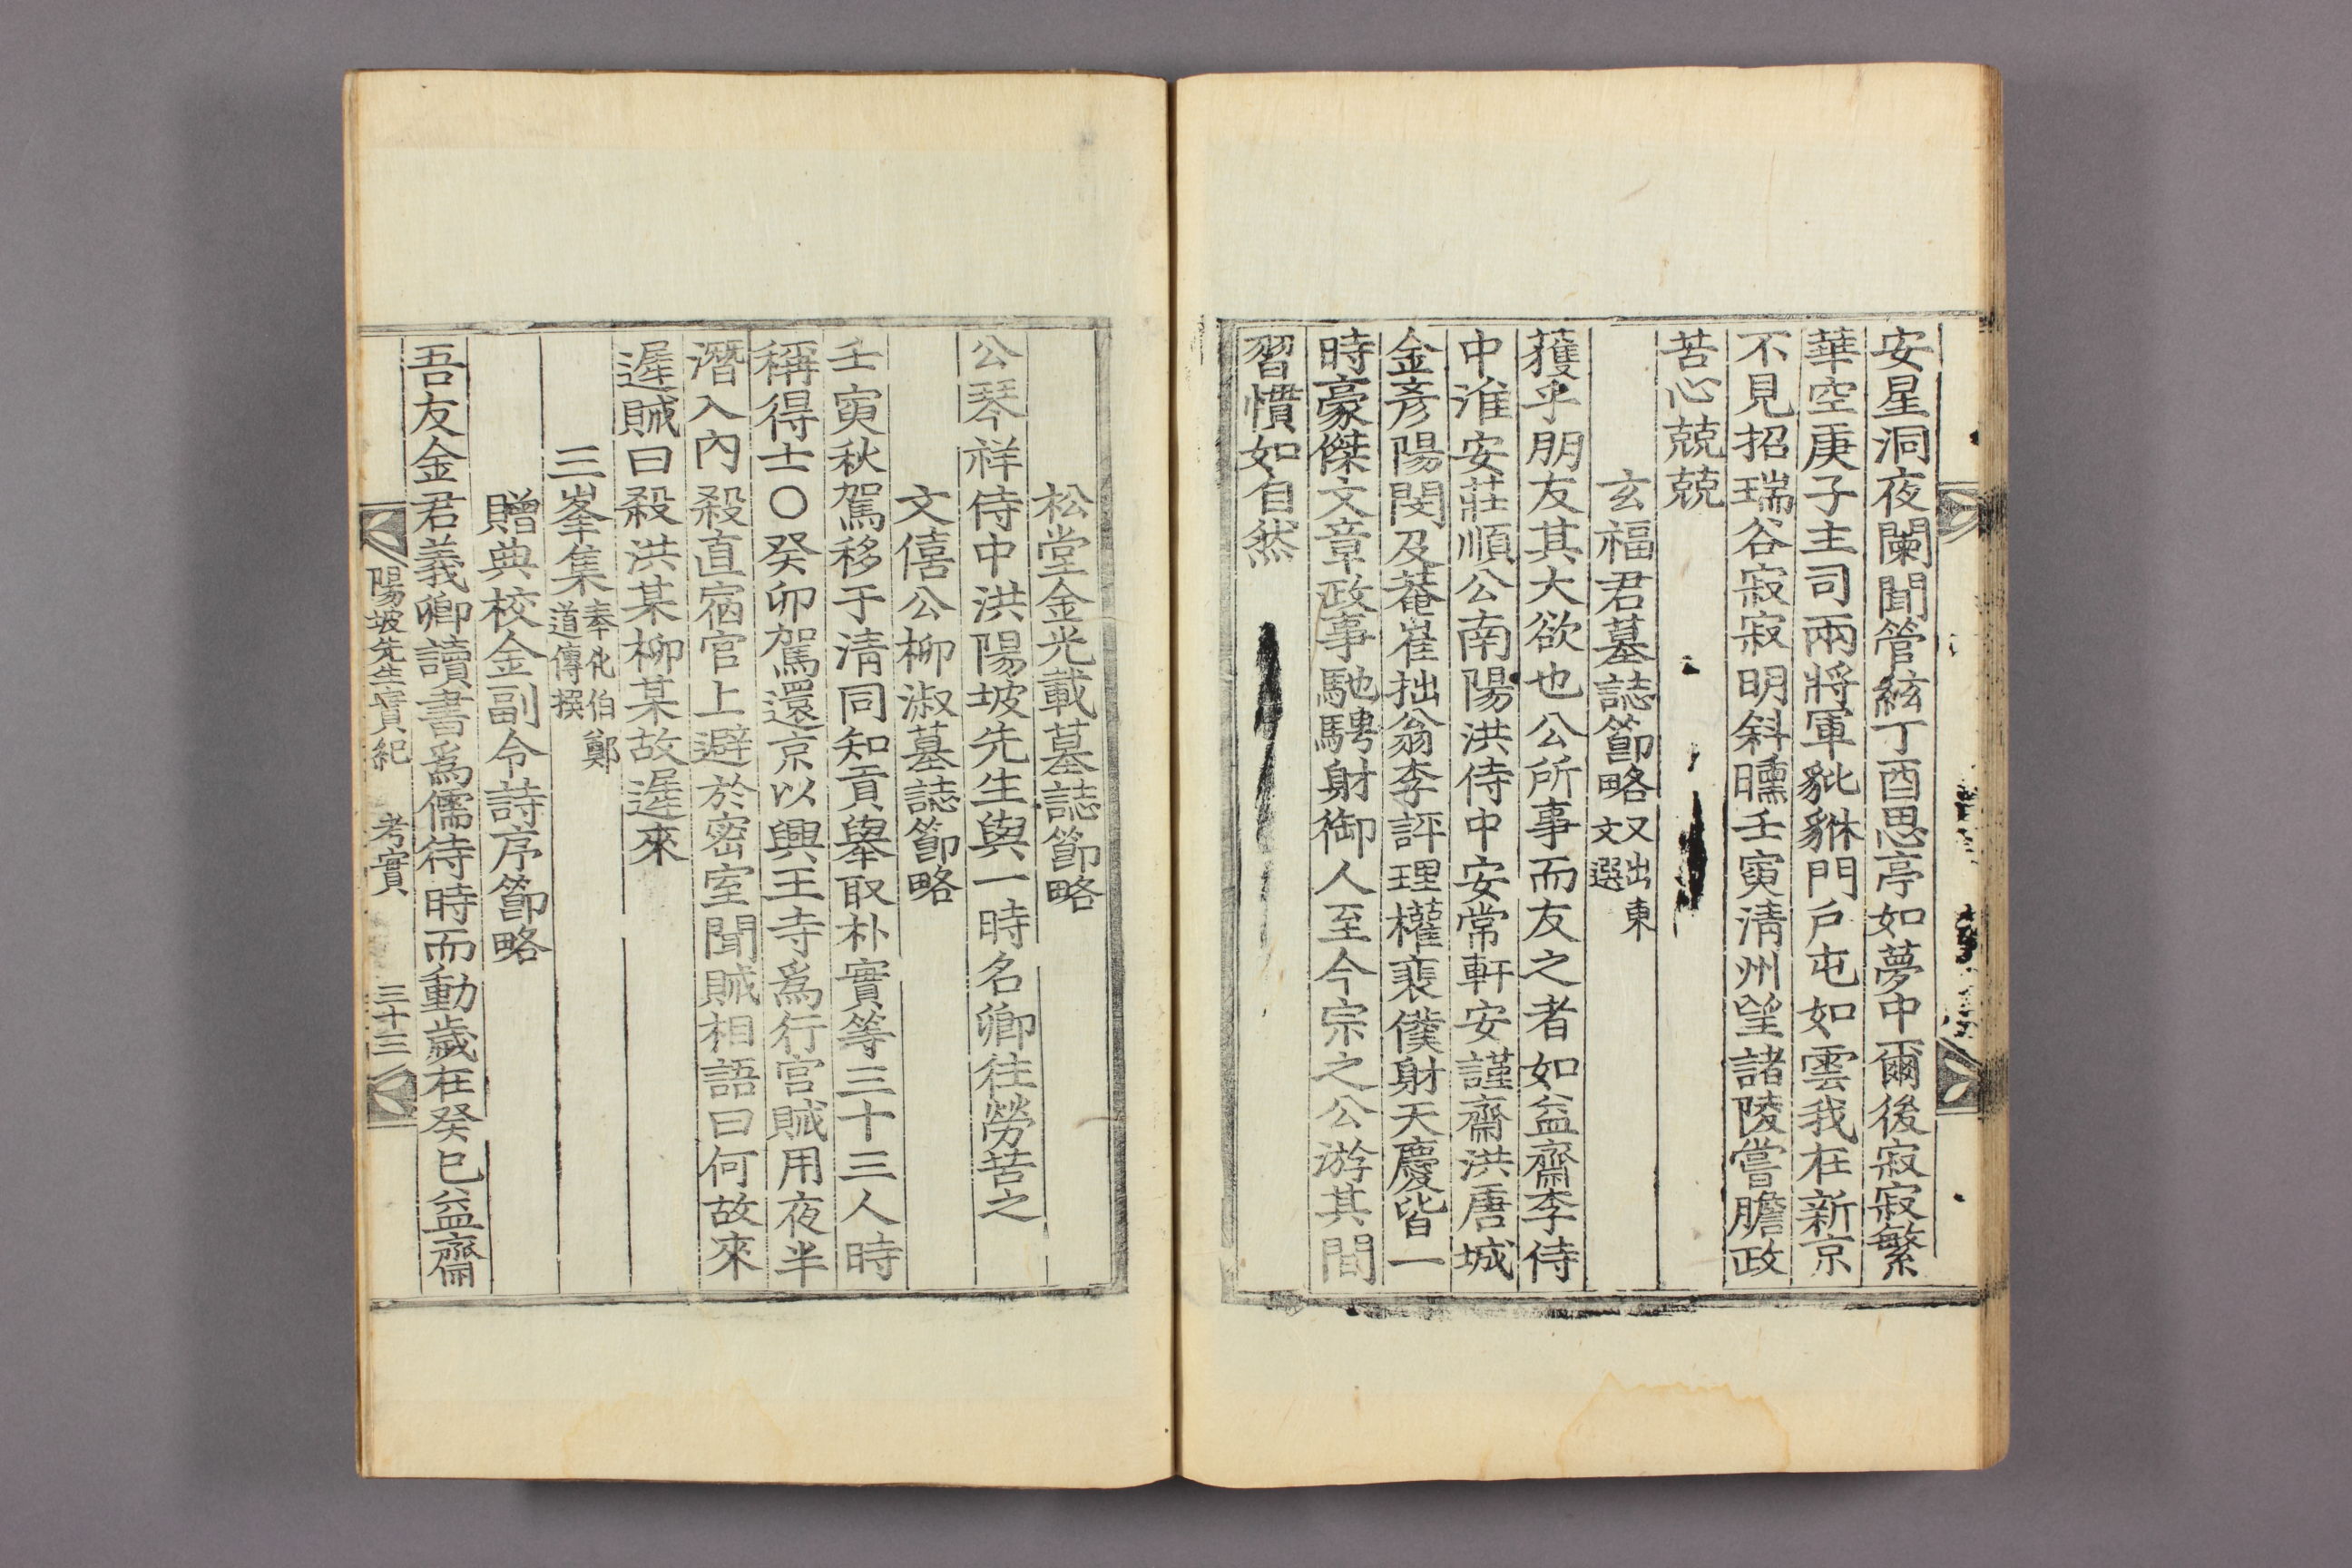 安星洞夜闌聞管絃丁酉思亭如夢中爾後寂寂繁
華空庚子主司兩將軍貔貅門戶屯如雲我在新京
不見招瑞谷寂寂明斜曛壬寅淸州望諸陵嘗膽政
苦心兢兢
玄福君墓誌節略又出東文選
獲乎朋友其大欲也公所事而友之者如益齋李侍
中淮安莊順公南陽洪侍中安常軒安謹齋洪唐城
金彥陽閔及菴崔拙翁李評理權裴僕射天慶皆一
時豪傑文章政事馳騁射御人至今宗之公游其間
習慣如自然
松堂金光載墓誌節略
公琴祥侍中洪陽坡先生與一時名卿往勞苦之
文僖公柳淑墓誌節略
壬寅秋駕移于淸同知貢擧取朴實等三十三人時
稱得士○癸卯駕還京以興王寺爲行宮賊用夜半
潛入內殺直宿官上避於密室聞賊相語曰何故來
遲賊曰殺洪某柳某故遲來
三峯集奉化伯鄭道傳撰
贈典校金副令詩序節略
吾友金君義卿讀書爲儒待時而動歲在癸巳益齋
陽坡先生實紀 考實 三十三